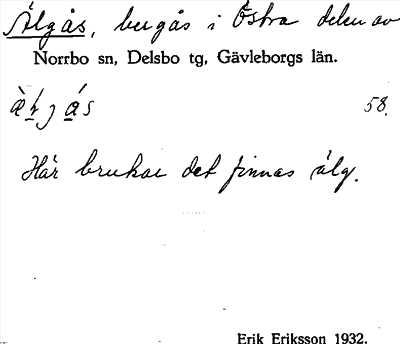 Älgås, bergås i Östra delen av
Norrbo sn, Delsbo tg, Gävleborgs län.
58.
Här brukar det finnas älg.
Erik Eriksson 1932.